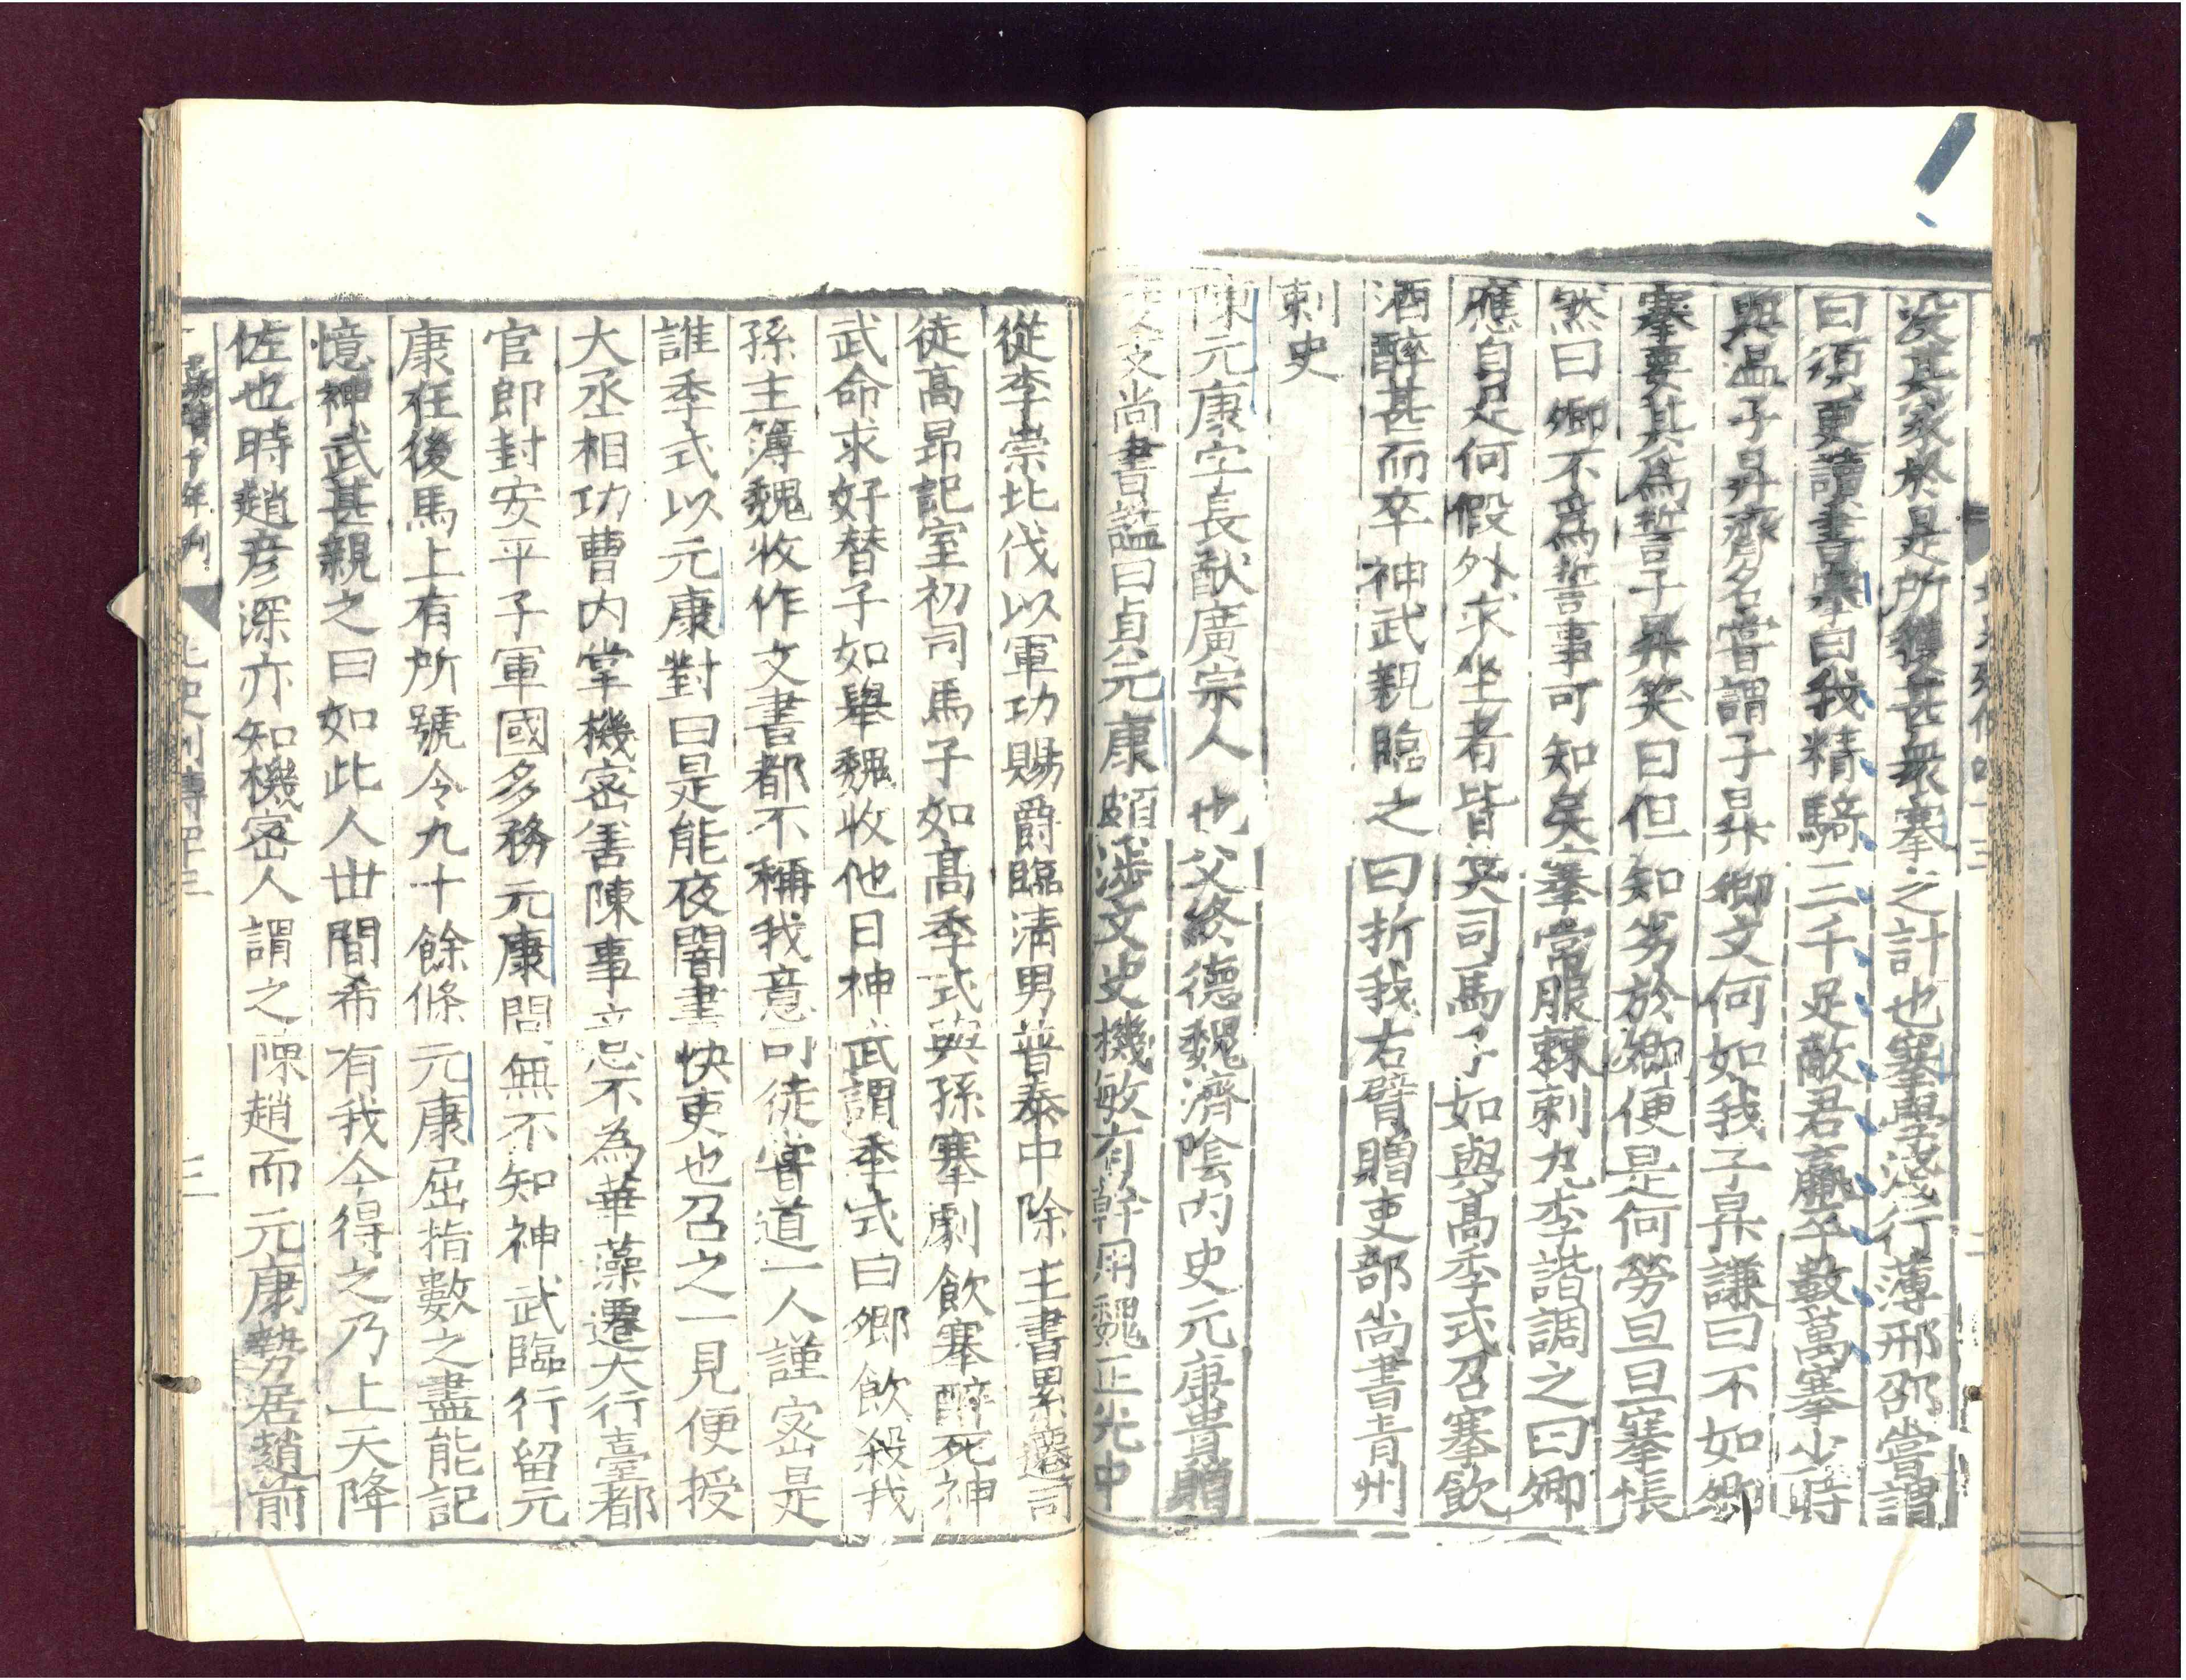 没其家於是所獲甚衆搴之計也搴學淺行薄邢邵嘗謂
曰須更讀書搴曰我精騎三千足敵君羸卒數萬搴少時
與温子昇齊名嘗謂子昇卿文何如我子昇謙曰不如卿
搴要其爲誓子昇笑曰但知劣於卿便是何勞旦旦搴悵
然曰卿不爲誓事可知矣搴常服棘刺丸李諧調之曰卿
應自足何假外求坐者皆笑司馬子如與高季式召搴飲
酒醉甚而卒神武親臨之曰折我右臂贈吏部尚書青州
刺史
陳元康字長猷廣宗人也父終德魏濟陰内史元康貴贈
尚書諡曰貞元康頗涉文史機敏有幹用魏正光中
從李崇北伐以軍功賜爵臨清男普泰中除主書累遷司
徒高昻記室初司馬子如高季式與孫搴劇飲搴醉死神
武命求好替子如舉魏收他日神武謂季式曰卿飲殺我
孫主簿魏收作文書都不稱我意司徒嘗道一人謹密是
誰季式以元康對曰是能夜闇書快吏也召之一見便授
大丞相功曹内掌機密善陳事意不為華藻遷大行臺都
官郎封安平子軍國多務元康問無不知神武臨行留元
康在後馬上有所號令九十餘條元康屈指數之盡能記
憶神武甚親之曰如此人世間希有我今得之乃上天降
佐也時趙彦深亦知機密人謂之陳趙而元康勢居趙前
北史列傳四十三 三